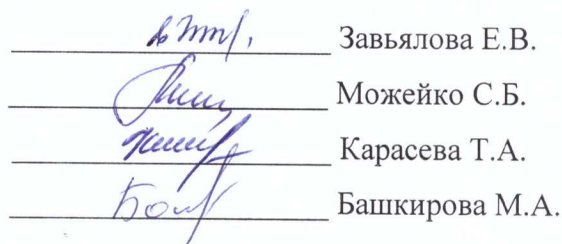 Завьялова Е.В.
Можейко С.Б.
Карасева Т.А.
Башкирова М.А.